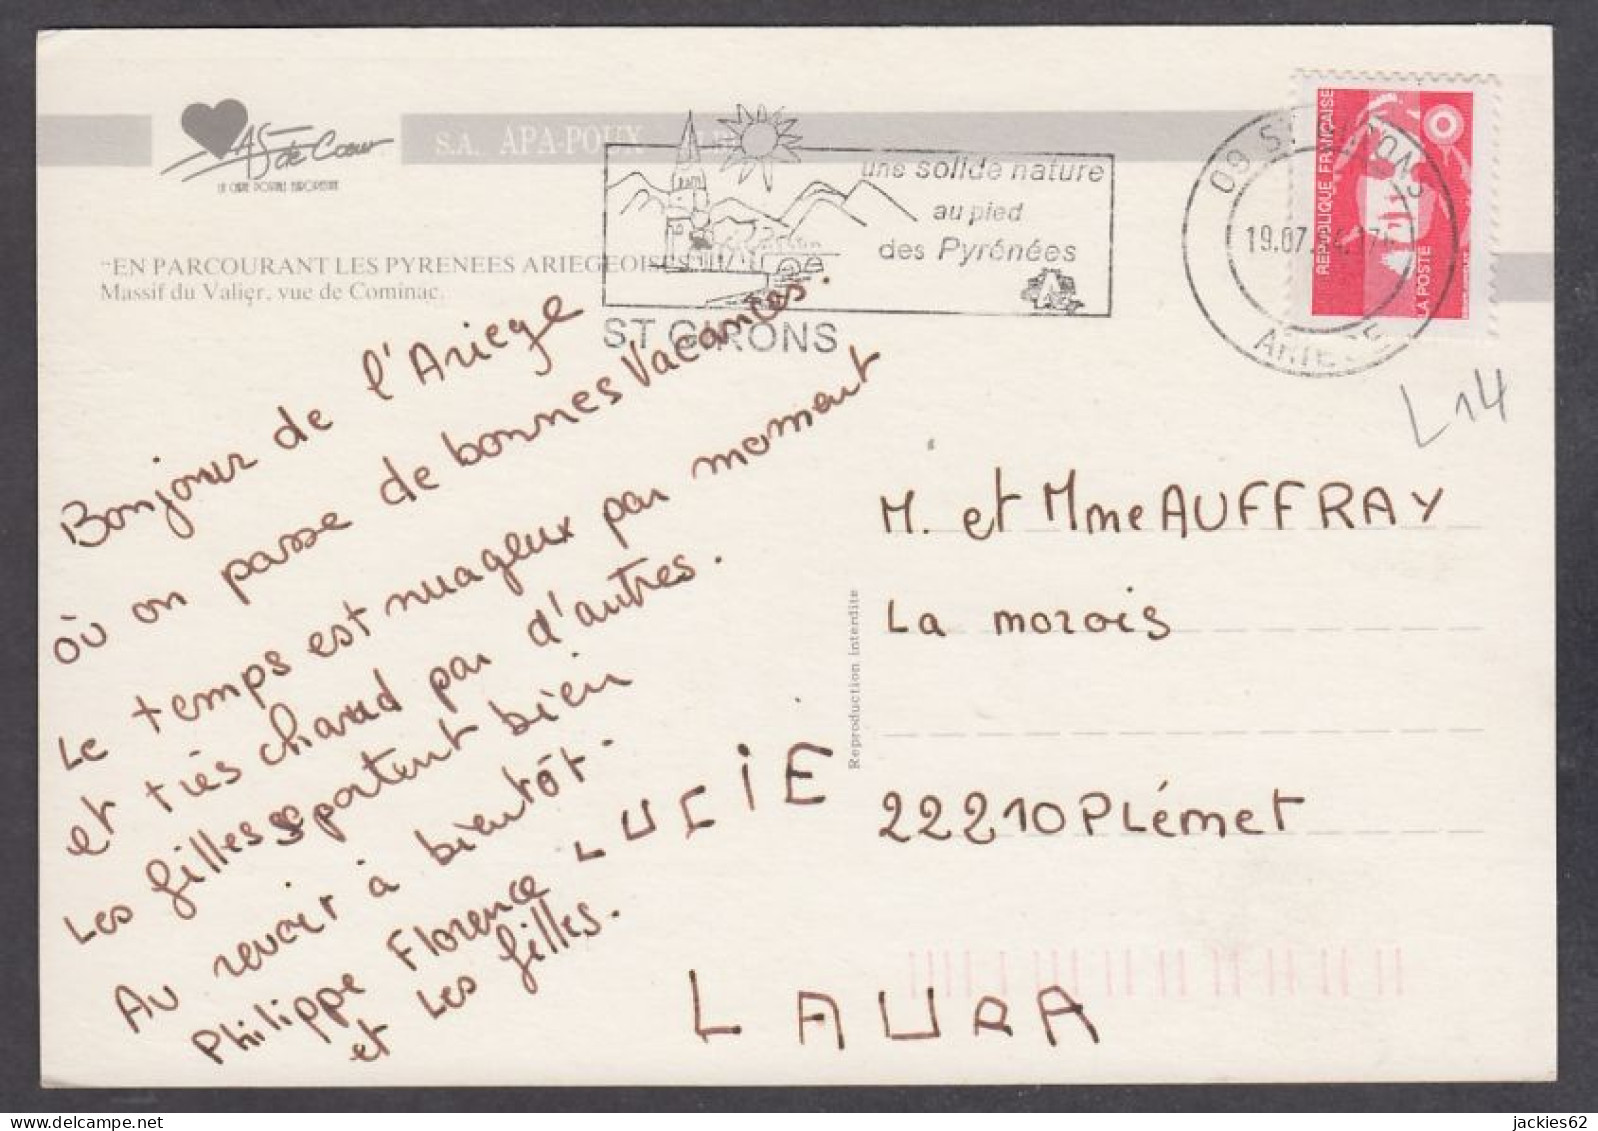 AS de Cœur
LA CARTE POSTALE EUROPEENNE
S.A. APA-POUX
"EN PARCOURANT LES PYRENEES ARIEGEOISES
Massif du Valier, vue de Cominac.
une solide nature
au pied
des Pyrénées
ST GIRONS
09 ST GIRONS
19.07.
ARIEGE
REPUBLIQUE FRANÇAISE
LA POSTE
L14
Bonjour de l'Ariege
où on passe de bonnes Vacances.
Le temps est nuageux par moment
et très chaud par d'autres.
Les filles se portent bien
Au revoir à bientôt.
Philippe Florence LUCIE
et Les filles.
LAURA
Reproduction interdite
M. et Mme AUFFRAY
La morois
22210 PLémet
jackies62